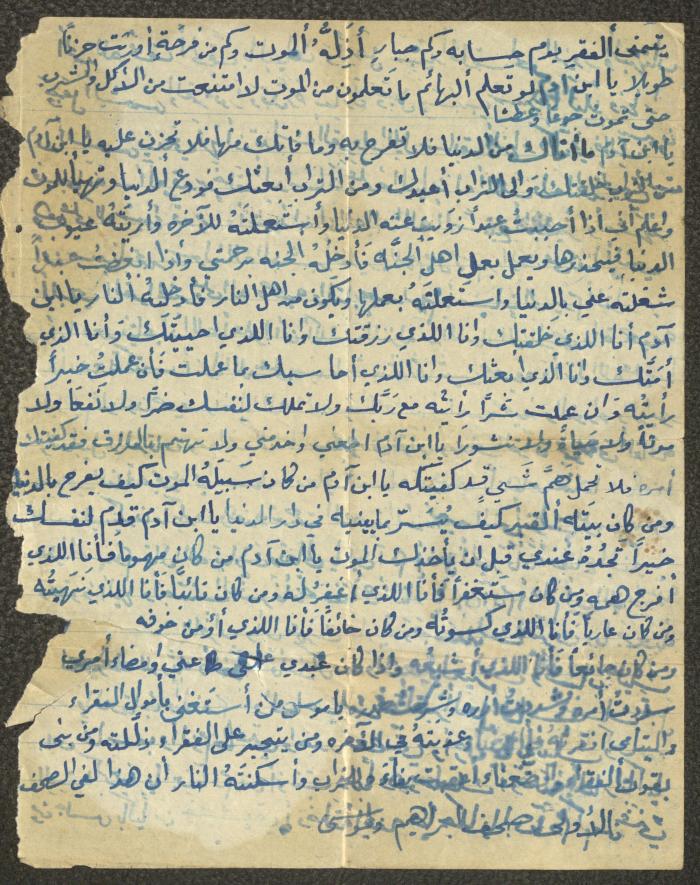 يتمنى ألفقير يوم حسابه وكم جبارٍ أذلَّهُ ألموت وكم من فرحةٍ أورثت حزناً
طويلا يا ابن آدم لو تعلم ألبهائم ما تعلمون من الموت لا امتنعت من الأكل والشرب
حتى تموت جوعاً وعطشا
يا ابن آدم ما أتاك من الدنيا فلا تفرح به وما فاتك منها فلا تحزن عليه يا ابن آدم
من التراب خلقتك وإلى التراب أعيدك ومن التراب أبعثك فودع ألدنيا وتهيأ للموت
واعلم أني أذا أحببت عبداً زويت عنه الدنيا وأستعملتهُ للآخره وأريتهُ عيوب
الدنيا فيحذرها ويعمل بعملِ اهل الجنَّه فأدخلُهُ الجنه برحمتي واذا ابغضت عبداً
شغلته عني بالدنيا واستعملتَهُ بعملها ويكون من اهل النار فأدخلهُ ألنار يا ابن
آدم أنا اللذي خلقتك وانا اللذي رزقتك وانا اللذي احييتك وأنا الذي
أمتّك وانا الذي أبعثك وانا اللذي أحاسبك بما عملت فأن عملت خيراً
رأيتهُ وَان عملت شرَّاً رأيته مع ربّك ولا تملك لنفسك ضرَّاً ولا نفعاً ولا
موتاً ولا حياةً ولا نشوراَ يا ابن آدم اطعني واخدمني ولا تهتم بالرزق فقد كفيتك
أمره فلا تحمل همَّ شيءٍ قد كفيتكه يا ابن آدم من كان سَبيلَهُ الموت كيف يفرح بالدنيا
ومن كان بيتَه ألقبر كيف يُسَرّ ببيته في دار الدنيا يا ابن آدم قدّم لنفسك
خيراً تجدُهُ عندي قبل ان يأخذك الموت يا ابن آدم من كان مهموماً فأنا اللذي
أفرج همه ومن كان مستغفراً فأنا اللذي أغفرُ له ومن كان تائباً فأنا اللذي نهيتُه
ومن كان عارياً فأنا اللذي كسوتُه ومن كان خائفاً فأنا اللذي أؤمن خوفه
ومن كان جائعاً فأنا اللذي أشبعُه واذا كان عبدي على طاعتي وامضاء أمري
سهلتُ أمره وشددتُ أزره وشرحت صدره يا موسى من أستغنى بأموال الفقراء
واليتامى افقرته في الدنيا وعذبته في الآخره ومن يتجبر على الفقراء اذللته ومن بنى
بقوة الفقراء والضعفاء اعقبت بناءه الخراب وأسكنتهُ النار أن هذا لفي الصحف
الأولى صحف ابراهيم وموسى